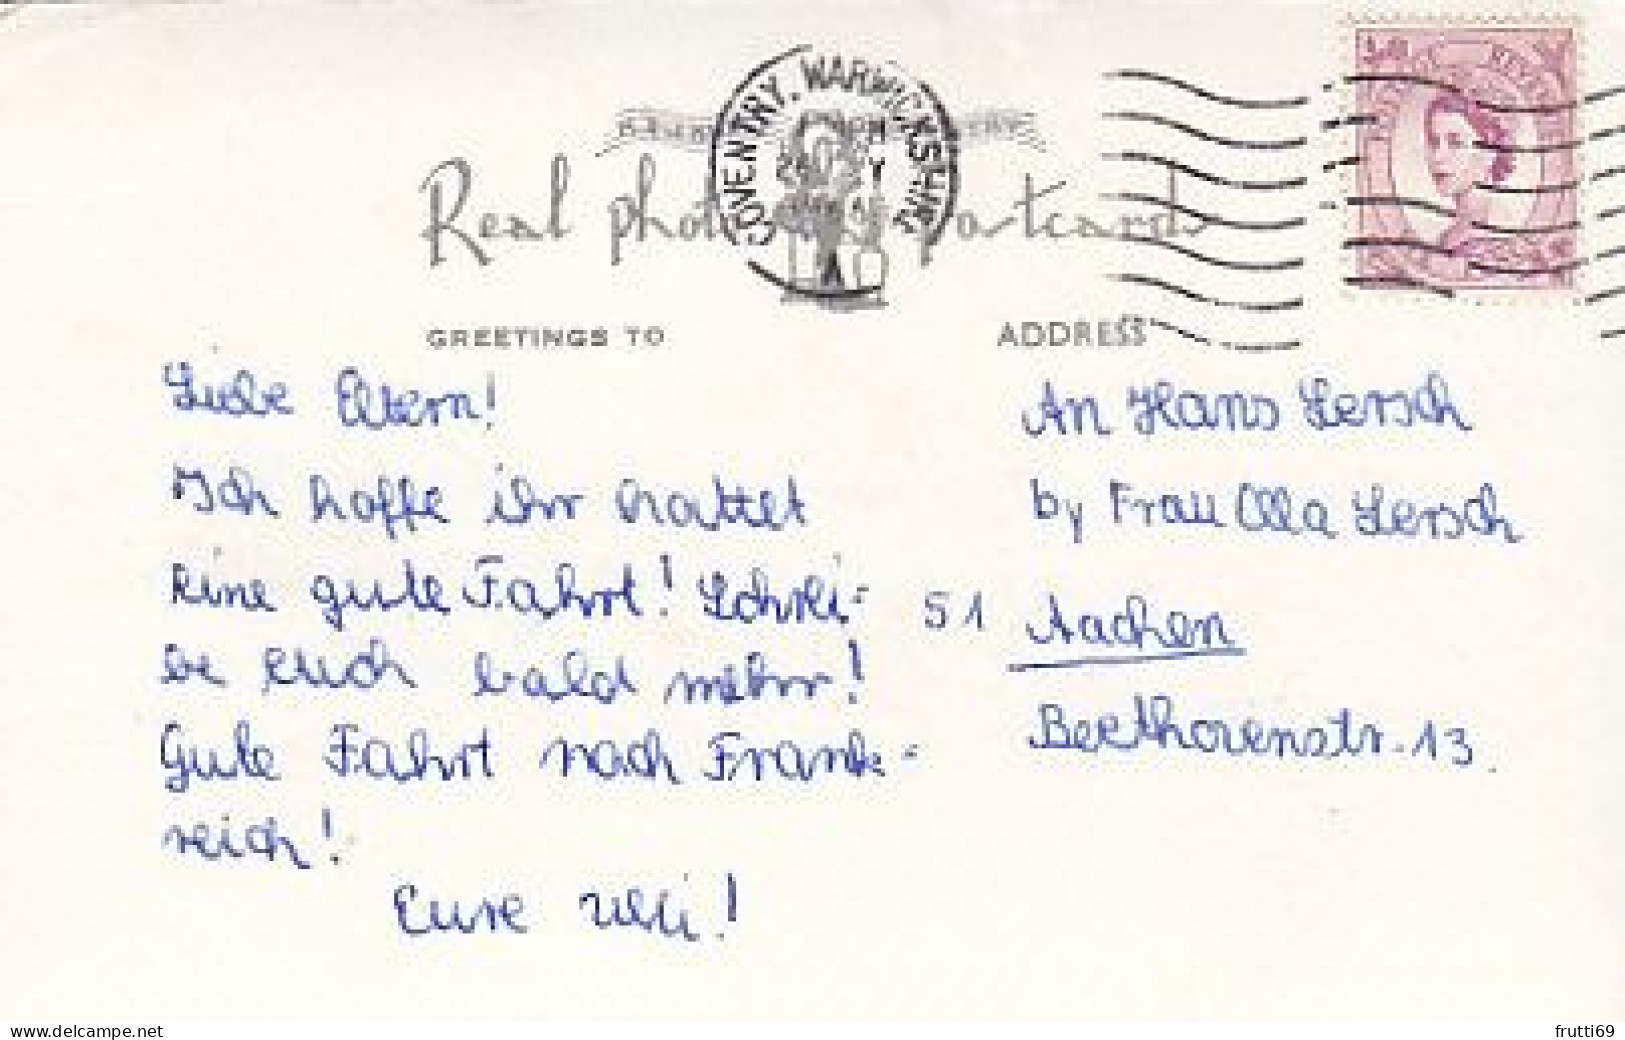 COVENTRY. WARWICKSHIRE
A
Real photographic postcards
GREETINGS TO
ADDRESS
Liebe Eltern!
Ich hoffe ihr hattet
eine gute Fahrt! Schrei-
be euch bald mehr!
Gute Fahrt nach Frank-
reich!
Eure Ulli!
An Hans Lersch
by Frau Olla Lersch
51 Aachen
Beethovenstr. 13.
www.delcampe.net
frutti69